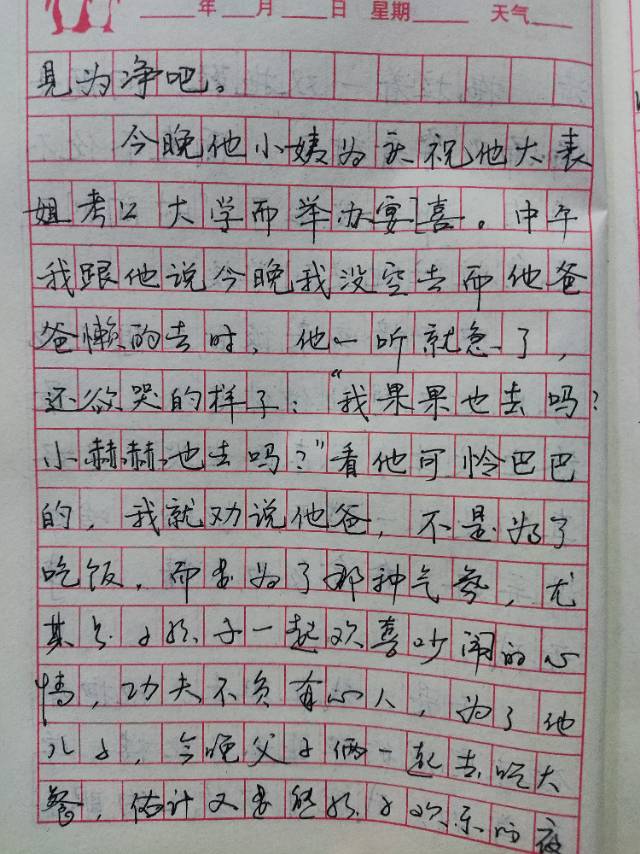 年 月 日 星期 天气
见为净吧。
今晚他小姨为庆祝他大表
姐考公大学而举办宴喜。中午
我跟他说今晚我没空去而他爸
爸懒的去时，他一听就急了，
还欲哭的样子："我果果也去吗？
小赫赫也去吗？"看他可怜巴巴
的，我就劝说他爸，不是为了
吃饭，而是为了那种气氛，尤
其是孩子一起欢喜吵闹的心
情，功夫不负有心人，为了他
儿子，今晚父子俩一起去吃大
餐，估计又是孩子欢乐的夜